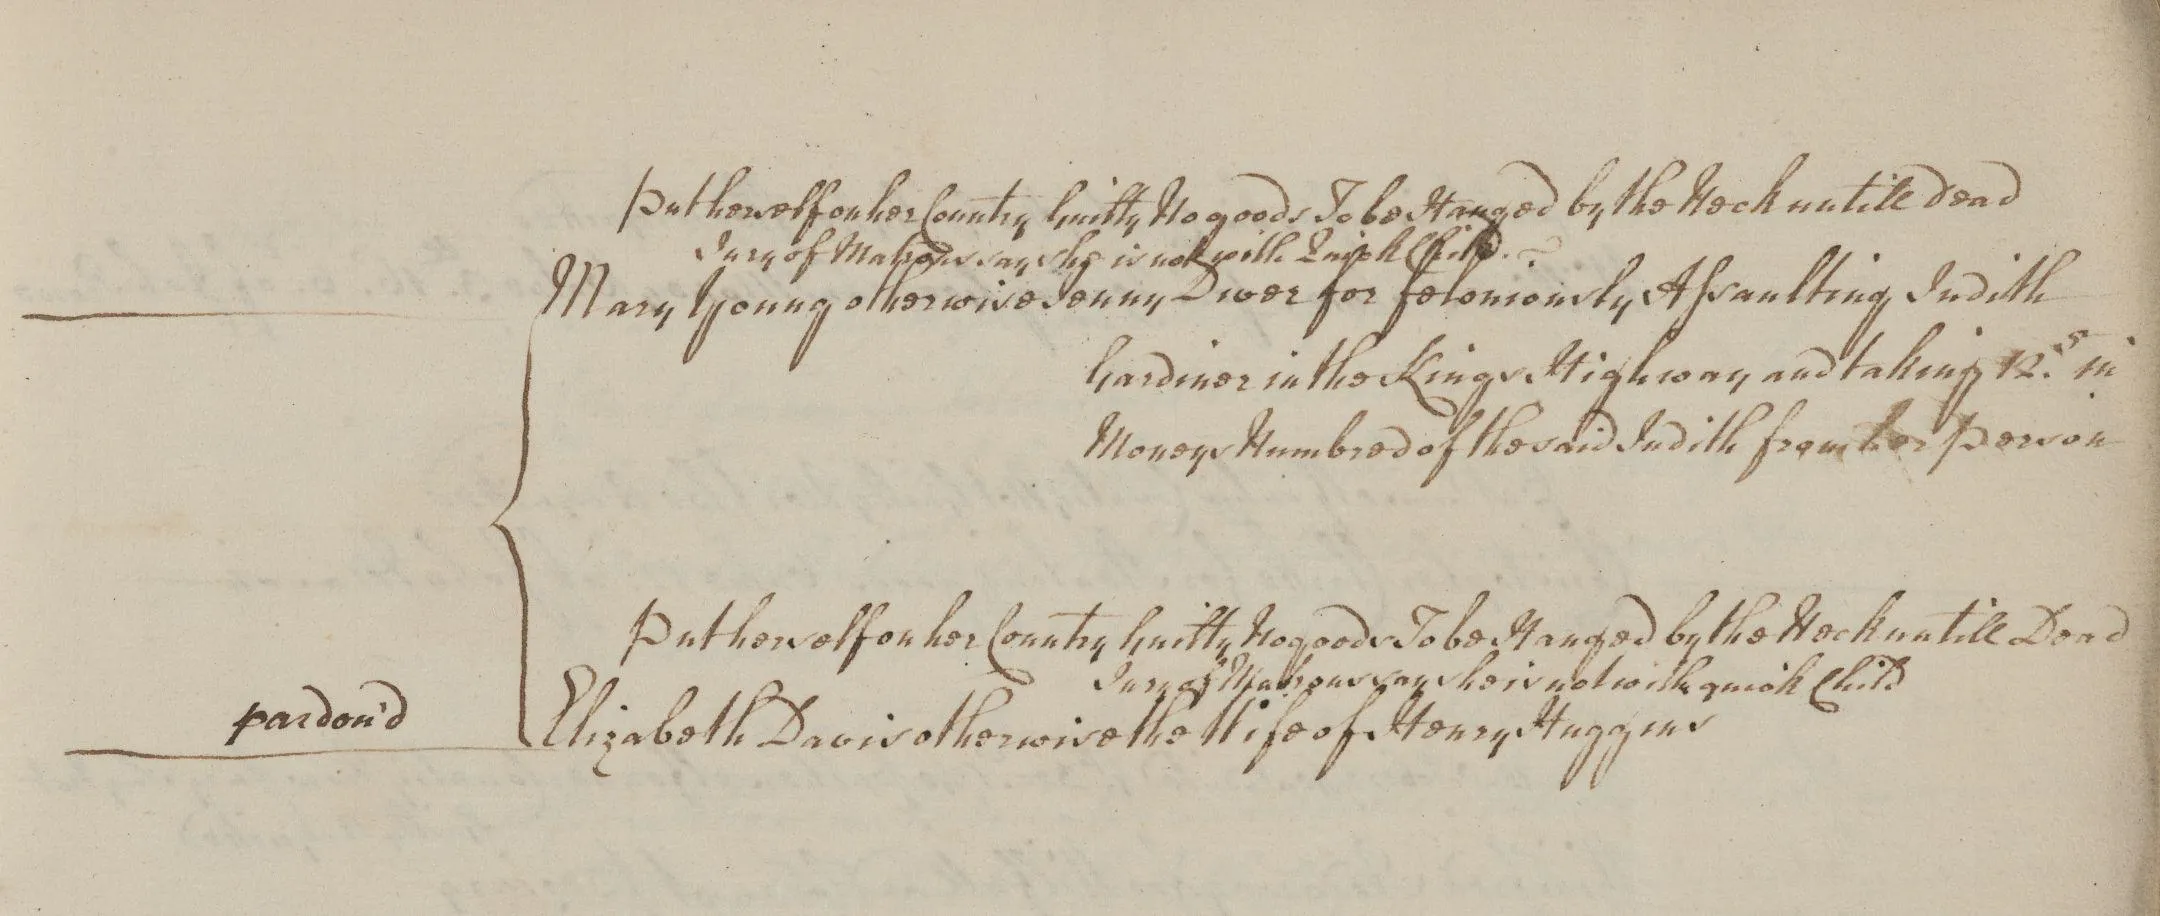 Put herself on her Country Guilty No goods To be Hanged by the Neck untill dead
Jury of Matrons say she is not with Quick Child.
Mary Young otherwise Jenny Diver for feloniously Assaulting Judith
Gardiner in the Kings Highway and taking 12.s in
Moneys Numbred of the said Judith from her person
Put herself on her Country Guilty No goods To be Hanged by the Neck untill Dead
Jury of Matrons say she is not with quick Child
pardon'd Elizabeth Davis otherwise the Wife of Henry Huggins